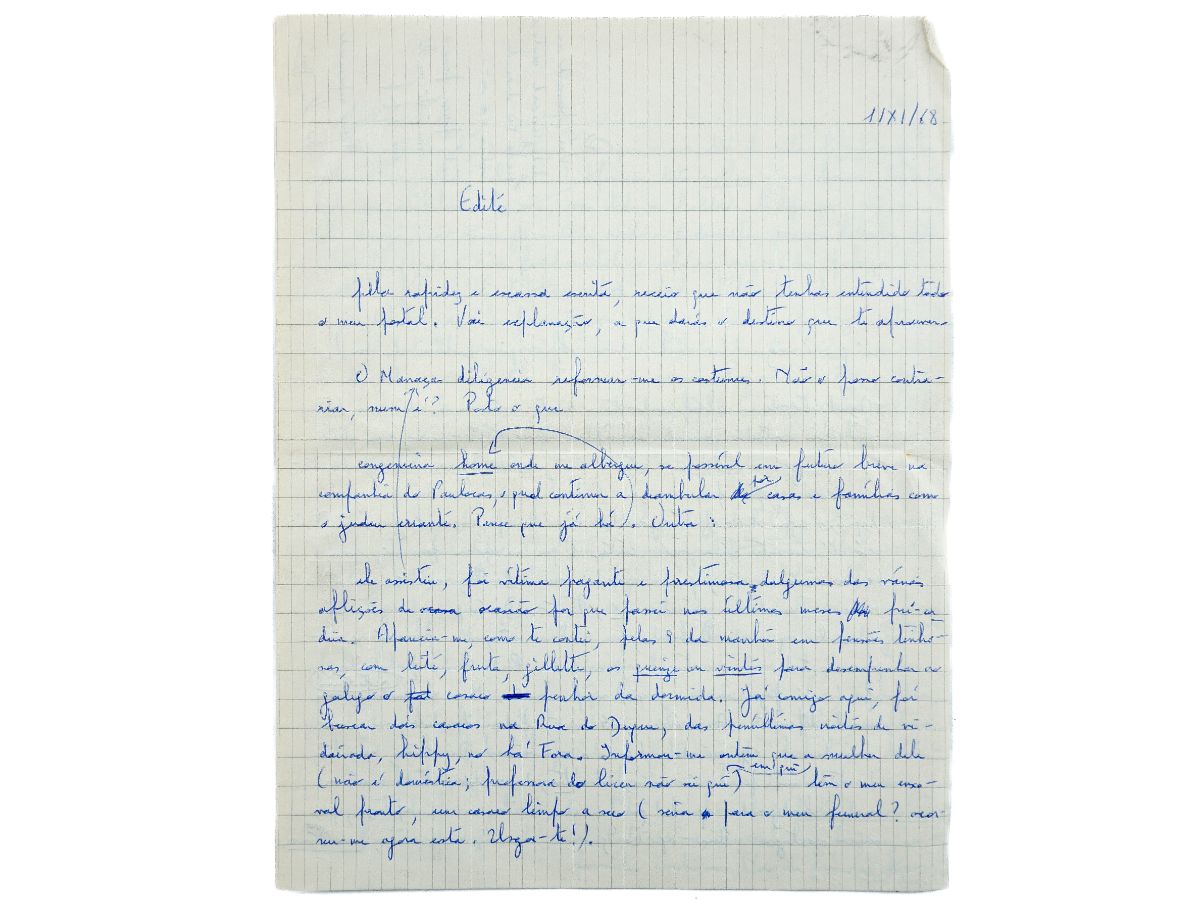 11X1/68
Edite
pela rapidez e escassa escrita, receio que não tenhas entendido todo
o meu postal. Vai explanação, a que darás o destino que te aprouver
O Manaças diligencia reformar-me os costumes. Não o posso contra-
riar, num é? Posto o que
congemina home onde me albergue, se possível em futuro breve na
companhia do Paulocas, o qual continua a deambular por casas e famílias como
o judeu errante. Parece que já há. Outra:
ele assistiu, foi vítima pagante e prestimosa dalgumas das várias
aflições de ocasião por que passei nos últimos meses
dia. Aparecia-me, com te contei, pelas 9 da manhã em pensões tenho-
sas, com leite, fruta, gillette, os quinze ou vintes para desempenhar ao
galego o casaco penhor da dormida. Já comigo aqui, foi
buscar dois casacos na Rua do Duque, das penúltimas noites de vi-
dairada, hippy, no há Fora. Informou-me ontem que a mulher dele
(não é doméstica; professora do liceu não sei quê) em quê têm o meu enxo-
val pronto, um casaco limpo a seco (seria para o meu funeral? ocor-
reu-me agora esta. Ulsga-te!).